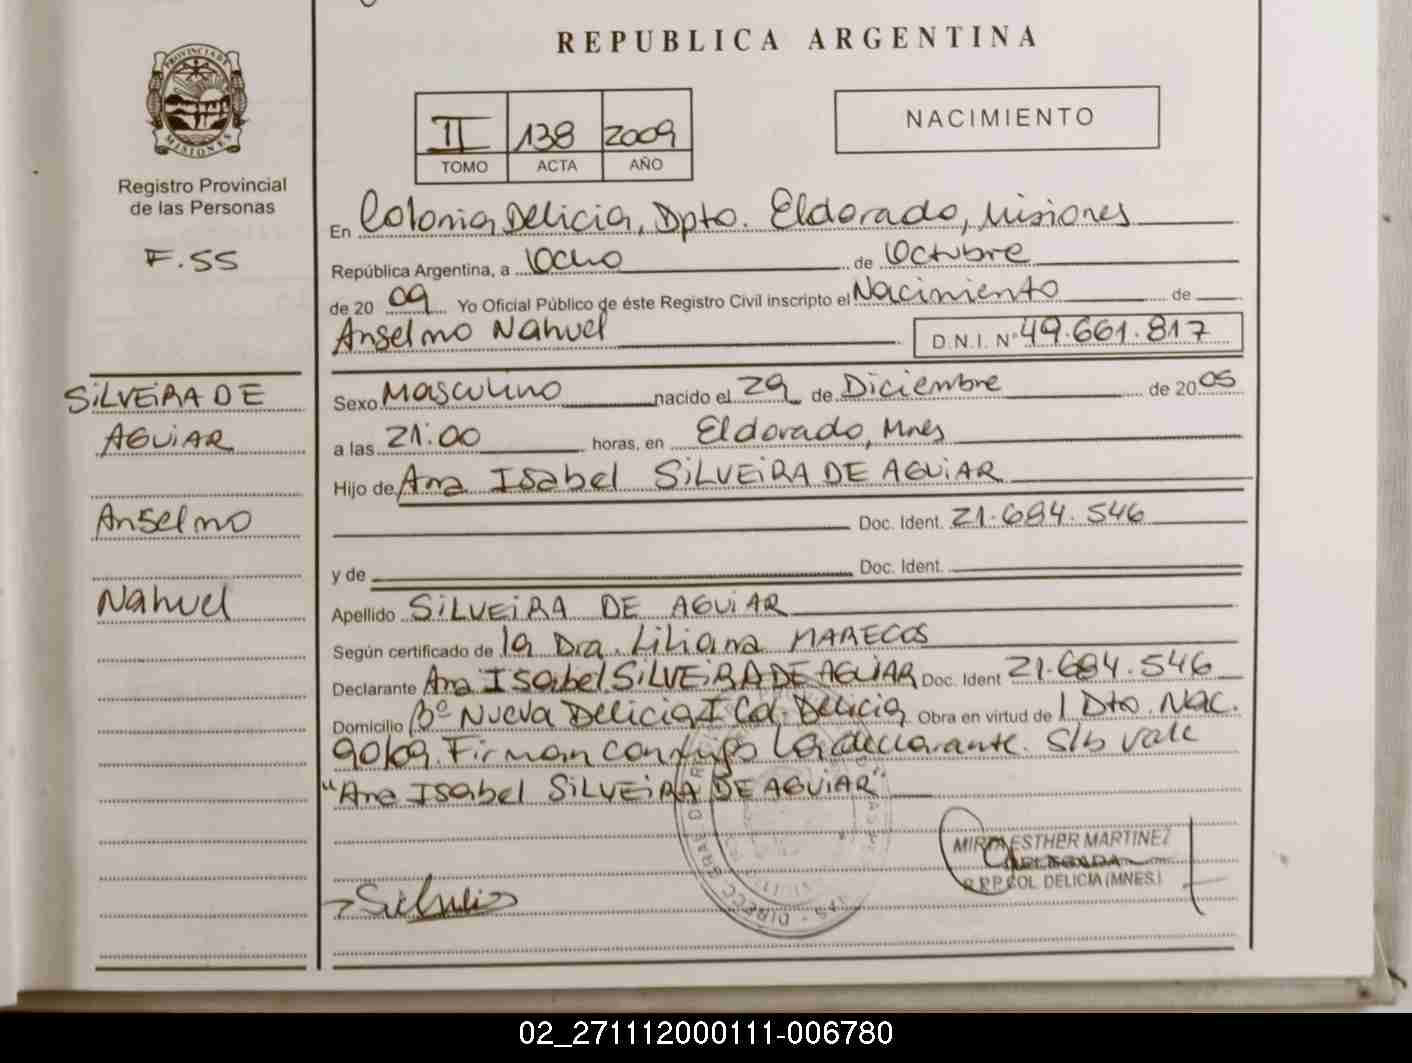 REPUBLICA ARGENTINA
PROVINCIA DE
MISIONES
Registro Provincial
de las Personas
F.55
II 138 2009
TOMO ACTA AÑO
NACIMIENTO
En Colonia Delicia, Dpto. Eldorado, Misiones
República Argentina, a Ocho de Octubre
de 2009 Yo Oficial Público de éste Registro Civil inscripto el Nacimiento de
Anselmo Nahuel D.N.I. Nº 49.661.817
SILVEIRA DE
AGUIAR
Anselmo
Nahuel
Sexo Masculino nacido el 29 de Diciembre de 2005
a las 21:00 horas, en Eldorado, Mnes
Hijo de Ana Isabel SILVEIRA DE AGUIAR
Doc. Ident. 21.684.546
y de Doc. Ident.
Apellido SILVEIRA DE AGUIAR
Según certificado de la Dra. Liliana MARECOS
Declarante Ana Isabel SILVEIRA DE AGUIAR Doc. Ident 21.684.546
Domicilio Bº Nueva Delicia I Col. Delicia Obra en virtud de 1 Dto. Nac.
90/09. Firman conmigo la declarante. S/b vale
"Ana Isabel SILVEIRA DE AGUIAR"
MIRTA ESTHER MARTINEZ
DELEGADA
R.P.P COL. DELICIA (MNES.)
02_271112000111-006780